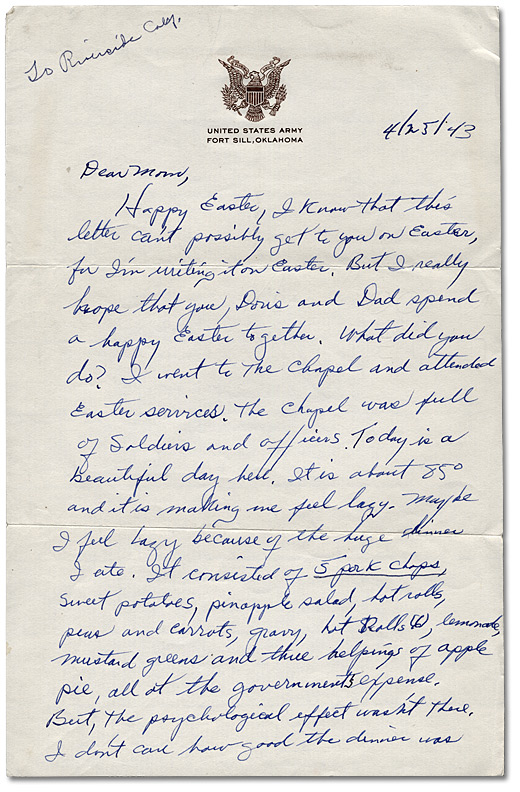 To Riverside Calif.
UNITED STATES ARMY
FORT SILL, OKLAHOMA
4/25/43
Dear Mom,
Happy Easter, I Know that this
letter can't possibly get to you on Easter,
for I'm writing it on Easter. But I really
hope that you, Doris and Dad spend
a happy Easter together. What did you
do? I went to the Chapel and attended
Easter services. The Chapel was full
of Soldiers and officers. Today is a
beautiful day here. It is about 85°
and it is making me feel lazy. Maybe
I feel lazy because of the huge dinner
I ate. It consisted of 5 pork chops,
sweet potatoes, pinapple salad, hot rolls,
peas and carrots, gravy, hot Rolls (6), lemonade,
mustard greens and three helpings of apple
pie, all at the government's expense.
But, the psychological effect wasn't there.
I don't care how good the dinner was